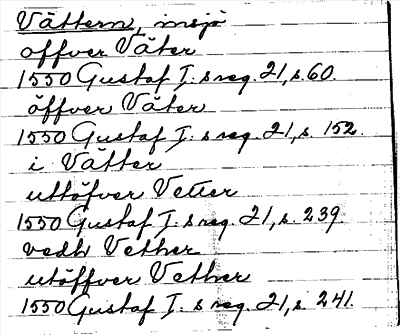 Vättern, insjö
öffver Väter
1550 Gustaf I:s reg. 21, s. 60.
öffver Väter
1550 Gustaf I:s reg. 21, s. 152.
i Vätter
uttöfver Vetter
1550 Gustaf I:s reg. 21, s. 239.
vedh Vether
utöffver Vether
1550 Gustaf I:s reg. 21, s. 241.